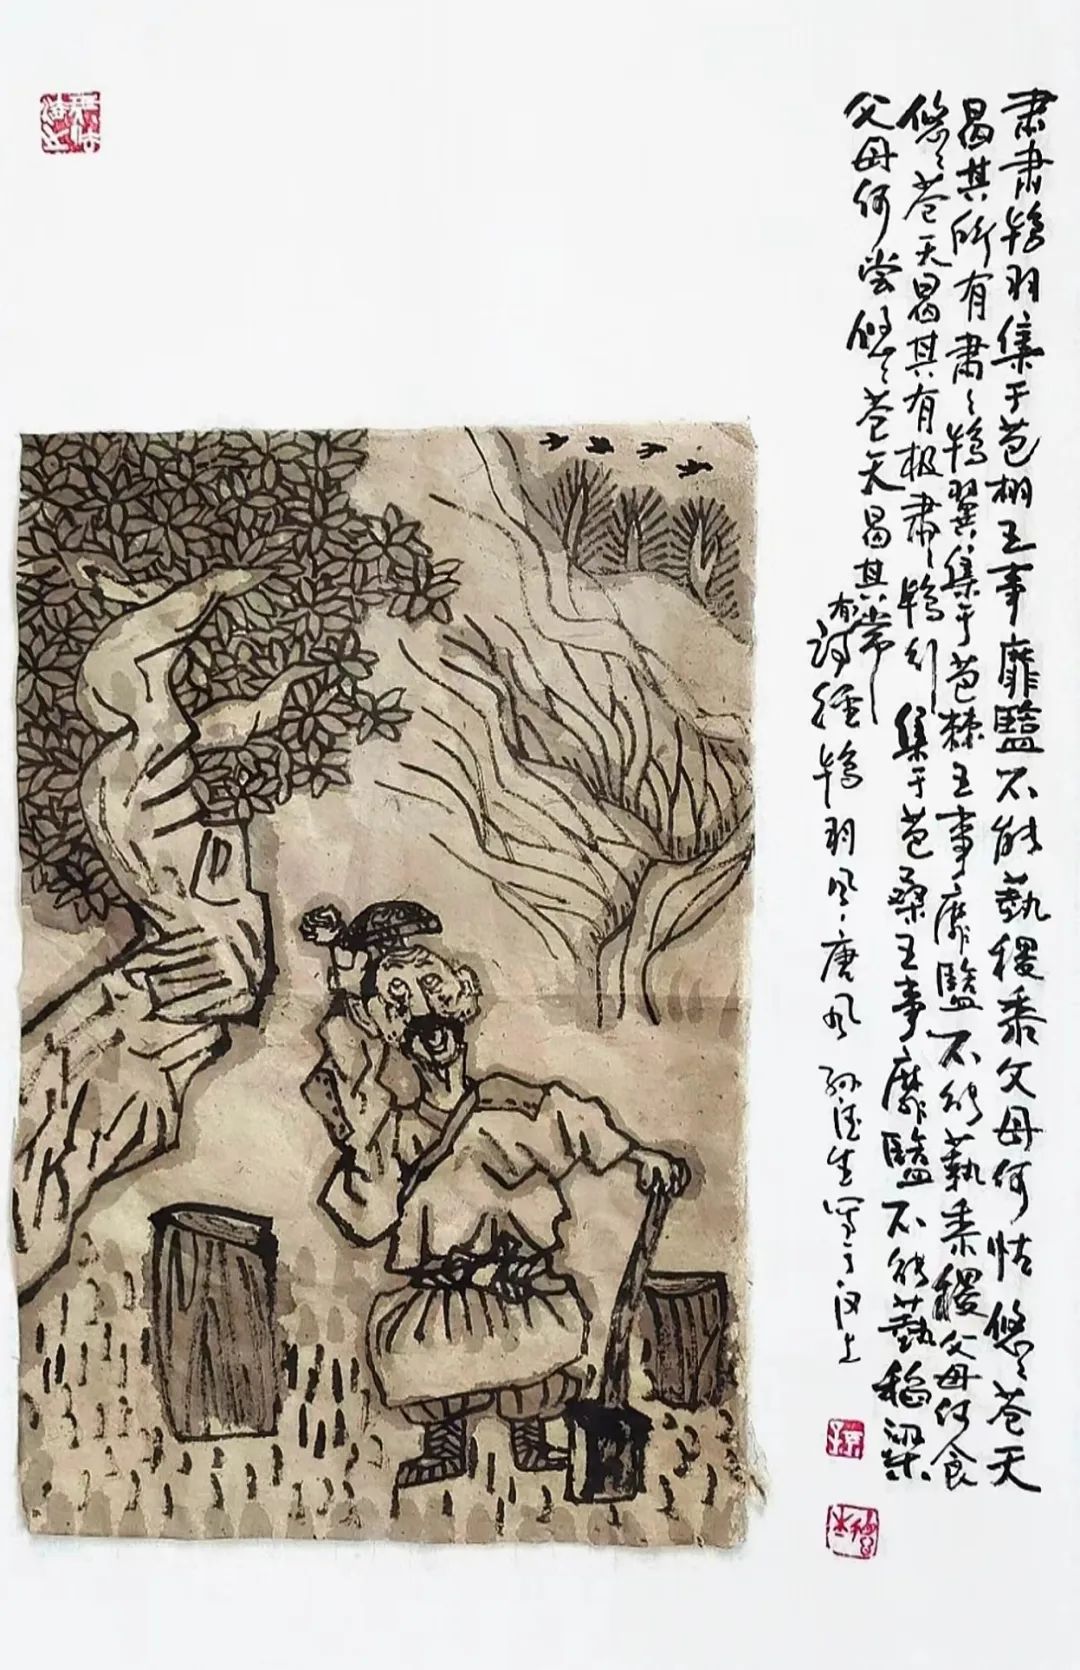 肃肃鸨羽集于苞栩王事靡盬不能蓺稷黍父母何怙悠〻苍天
曷其所有肃〻鸨翼集于苞棘王事靡盬不能蓺黍稷父母何食
悠〻苍天曷其有极肃〻鸨行集于苞桑王事靡盬不能蓺稻梁
父母何尝悠〻苍天曷其常
有
诗经鸨羽风·唐风 孙德生写于汶上